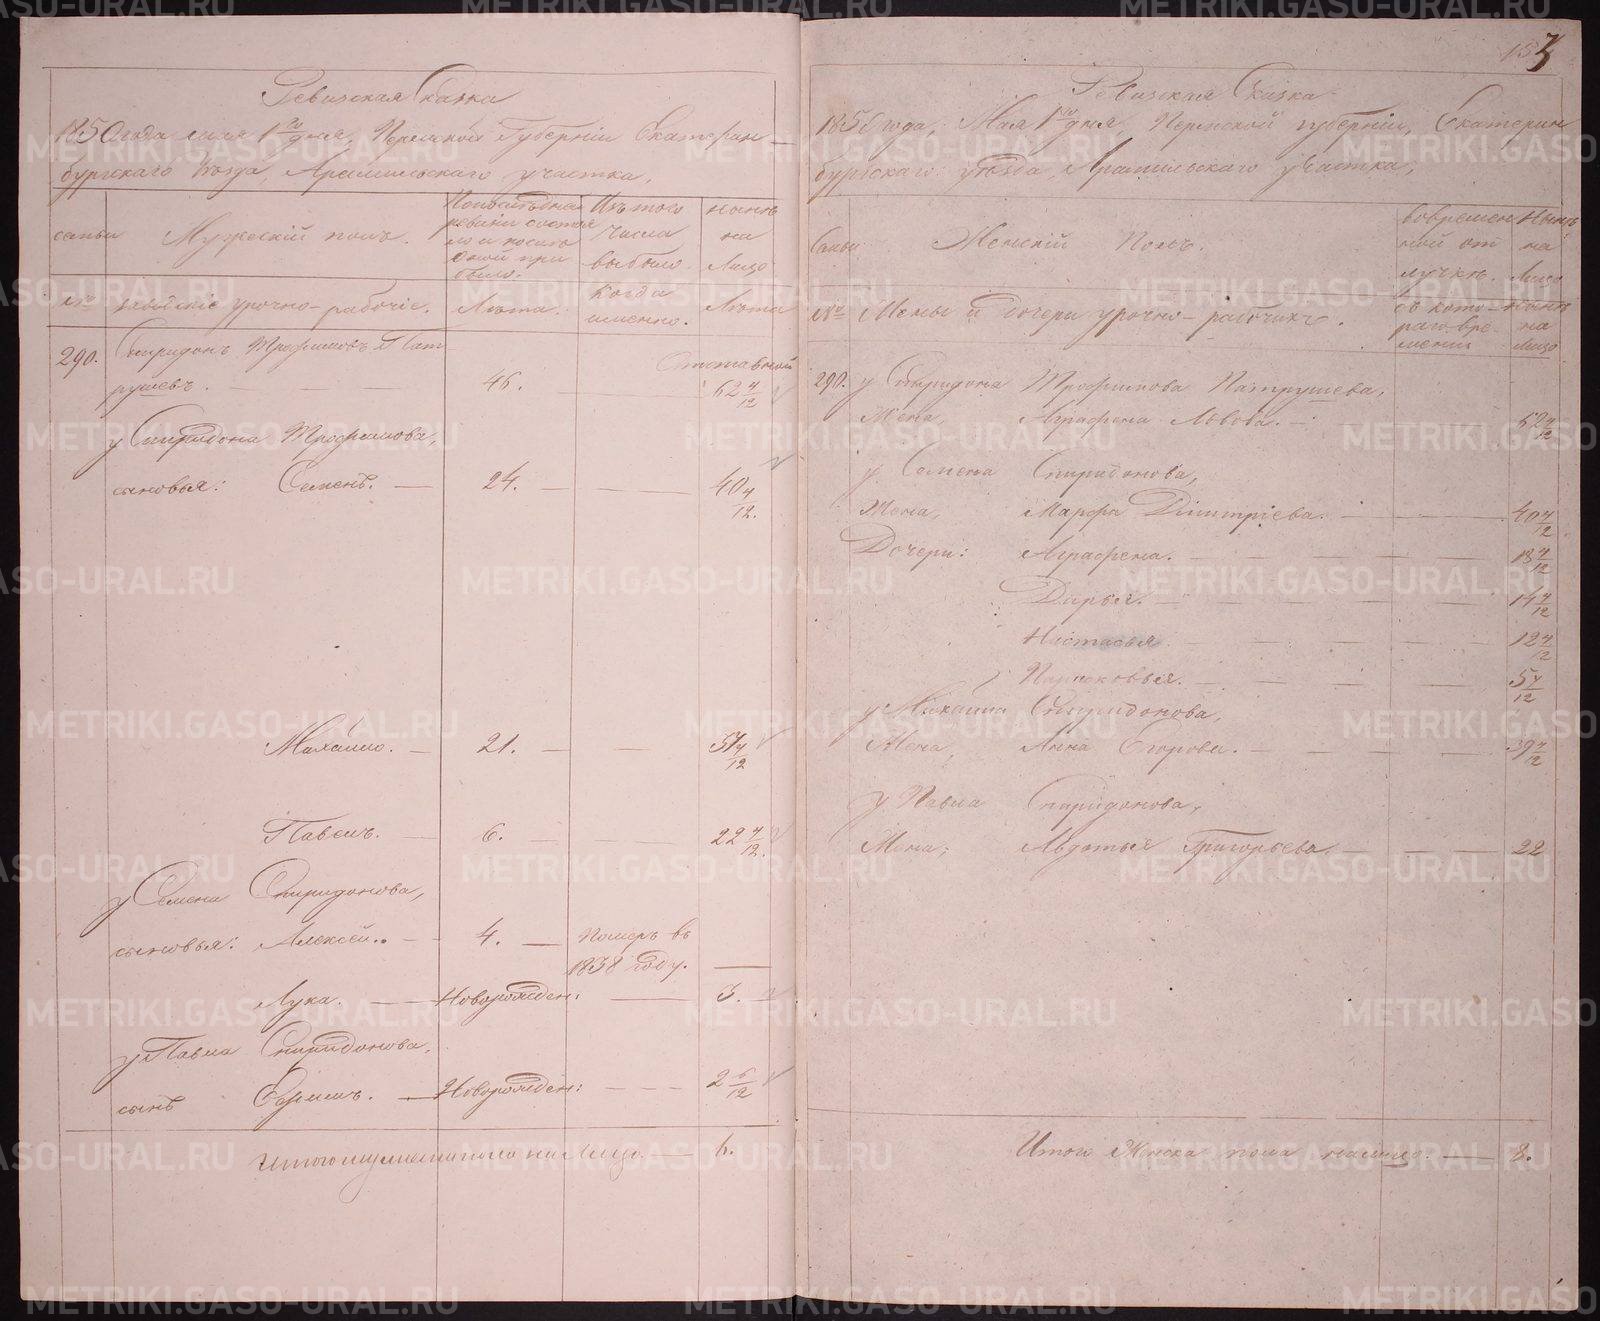 Ревизская Сказка
1850 года мая 1го дня, Пермской Губерніи Екатерин-
бургскаго Уѣзда, Арамильскаго участка,
семьи
Мужескій полъ.
Изъ того
числа
выбыло.
нынѣ
на
лицо
№
урочно-рабочіе.
Лѣта.
Когда
именно.
Лѣта
290.
Спиридонъ Трофимовъ Пат
рушевъ. 46. 62 4/12
у Спиридона Трофимова,
сыновья: Семенъ. 24. 40 4/12.
Михайло. 21. 37 4/12
Павелъ. 6. 22 4/12.
у Семена Спиридонова,
сыновья: Алексѣй. 4. Померъ въ
1838 году.
Лука. Новорожден: 3.
у Павла Спиридонова,
сынъ Новорожден: 2 6/12
Итого мужеска пола на лицо 6.
Ревизская Сказка
1850 года, Мая 1го дня Пермской губерніи, Екатерин
бургскаго уѣзда, Арамильскаго участка,
Семьи
Женскій Полъ.
вовремен
ной от
лучкѣ.
Нынѣ
на
Лицо
№
Жены и дочери урочно-рабочихъ.
съ кото-
раго вре-
мени
Нынѣ
на
лицо
290. у Спиридона Трофимова Патрушева,
Жена, Аграфена Львова. 62 4/12
у Семена Спиридонова,
Жена, Марфа Дімитріева. 40 4/12
Дочери: Аграфена. 18 4/12
Дарья. 14 4/12
Настасья 12 4/12
Парасковья. 5 4/12
у Михайла Спиридонова,
Жена, Анна Егорова. 39 4/12
у Павла Спиридонова,
Жена, Авдотья Григорьева. 22
Итого Женска пола налицо. 8.
METRIKI.GASO-URAL.RU